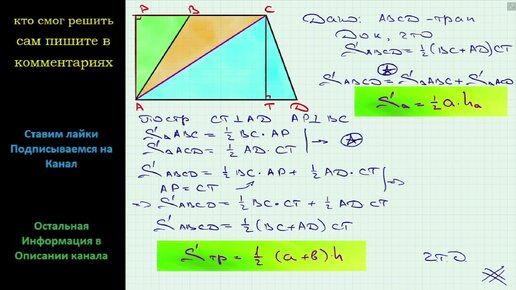 кто смог решить
сам пишите в
комментариях
Ставим лайки
Подписываемся на
Канал
Остальная
Информация в
Описании канала
P B C
A T D
Дано: ABCD - трап
Док, что
S ABCD = 1/2 (BC + AD) CT
S ABCD = S△ABC + S△ACD
S△ = 1/2 a · hₐ
Постр CT ⊥ AD AP ⊥ BC
S△ABC = 1/2 BC · AP
S△ACD = 1/2 AD · CT
S ABCD = 1/2 BC · AP + 1/2 AD · CT
AP = CT
⇒ S ABCD = 1/2 BC · CT + 1/2 AD CT
S ABCD = 1/2 (BC + AD) CT
S тр = 1/2 (a + в) · h
чтд